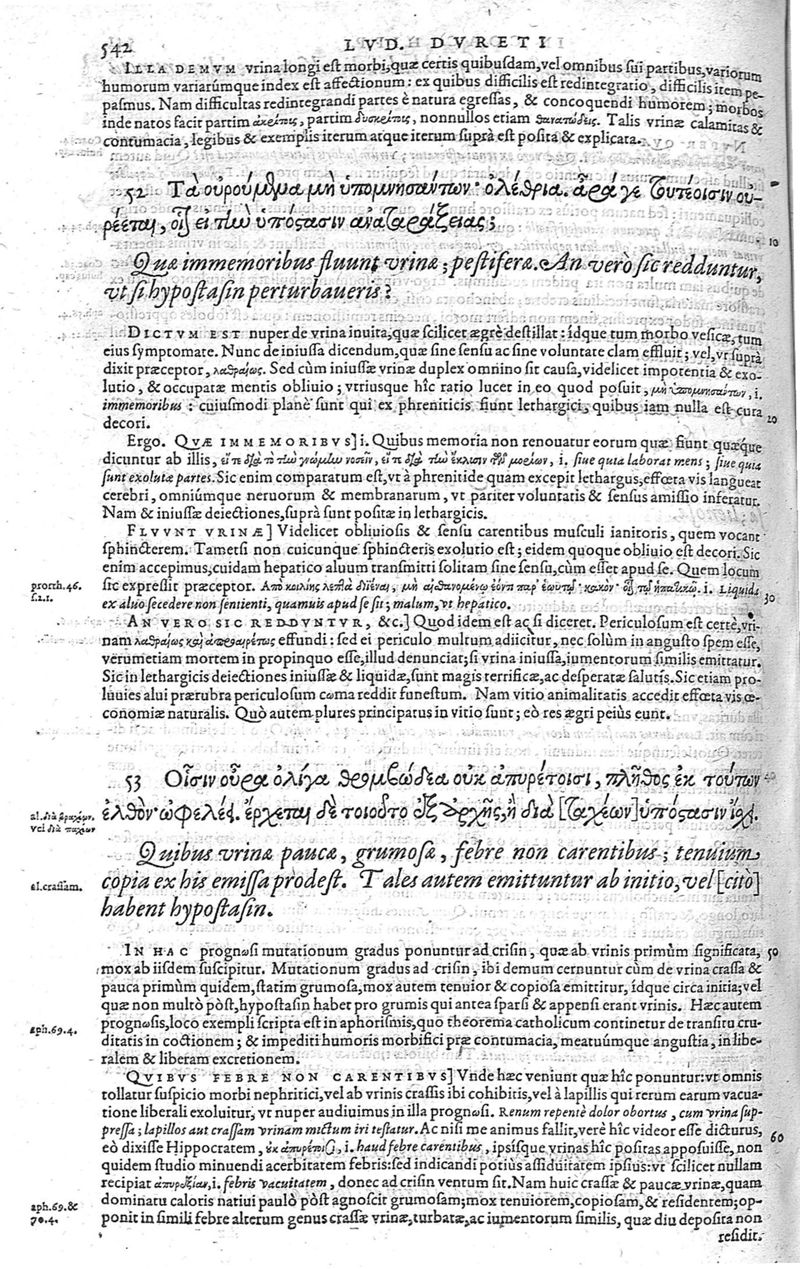 542
LVD. DVRETI
ILLA DEMVM vrina longi est morbi, quæ certis quibusdam, vel omnibus sui partibus, variorum
humorum variarúmque index est affectionum: ex quibus difficilis est redintegratio, difficilis item pe-
pasmus. Nam difficultas redintegrandi partes è natura egressas, & concoquendi humorem; morbos
inde natos facit partim ἀκρίτους, partim δυσκρίτους, nonnullos etiam θανατώδεις. Talis vrinæ calamitas &
contumacia, legibus & exemplis iterum atque iterum suprà est posita & explicata.
52 Τὰ οὐρούμενα μὴ ὑπομνησάντων· ὀλέθρια. ἆρά γε τουτέοισιν οὐ-
ρέεται, οἷον εἰ τὴν ὑπόστασιν ἀναταράξειας;
Quæ immemoribus fluunt vrinæ; pestiferæ. An verò sic redduntur,
vt si hypostasin perturbaueris?
DICTVM EST nuper de vrina inuita, quæ scilicet ægrè destillat: ídque tum morbo vesicæ, tum
eius symptomate. Nunc de iniussa dicendum, quæ sine sensu ac sine voluntate clam effluit; vel, vt suprà
dixit præceptor, λαθραίως. Sed cùm iniussæ vrinæ duplex omnino sit causa, videlicet impotentia & exo-
lutio, & occupatæ mentis obliuio; vtriusque hîc ratio lucet in eo quod posuit, μὴ ὑπομνησάντων, i.
immemoribus: cuiusmodi planè sunt qui ex phreniticis fiunt lethargici, quibus iam nulla est cura
decori.
20
Ergo. QVÆ IMMEMORIBVS] i. Quibus memoria non renouatur eorum quæ fiunt quæque
dicuntur ab illis, εἴτε διὰ τὸ τὴν γνώμην νοσεῖν, εἴτε διὰ τὴν ἔκλυσιν τῶν μορίων, i. siue quia laborat mens; siue quia
sunt exolutæ partes. Sic enim comparatum est, vt à phrenitide quam excepit lethargus, effœta vis langueat
cerebri, omniúmque neruorum & membranarum, vt pariter voluntatis & sensus amissio inferatur.
Nam & iniussæ deiectiones, suprà sunt positæ in lethargicis.
FLVVNT VRINÆ] Videlicet obliuiosis & sensu carentibus musculi ianitoris, quem vocant
sphincterem. Tametsi non cuicunque sphincteris exolutio est; eidem quoque obliuio est decori. Sic
enim accepimus, cuidam hepatico aluum transmitti solitam sine sensu, cùm esset apud se. Quem locum
prorrh.46.
s.2.1.
sic expressit præceptor. Ἀπὸ κοιλίης λεπτὰ διϊέναι, μὴ αἰσθανομένῳ ἐόντι παρ' ἑωυτῷ· κακόν· οἷον τῷ ἡπατικῷ. i. Liquida
30
ex aluo secedere non sentienti, quamuis apud se sit; malum, vt hepatico.
AN VERO SIC REDDVNTVR, &c.] Quod idem est ac si diceret. Periculosum est certè, vri-
nam λαθραίως καὶ ἀπροαιρέτως effundi: sed ei periculo multum adiicitur, nec solùm in angusto spem esse,
verumetiam mortem in propinquo esse, illud denunciat; si vrina iniussa, iumentorum similis emittatur.
Sic in lethargicis deiectiones iniussæ & liquidæ, sunt magis terrificæ, ac desperatæ salutis. Sic etiam pro-
luuies alui prærubra periculosum coma reddit funestum. Nam vitio animalitatis accedit effœta vis œ-
conomiæ naturalis. Quò autem plures principatus in vitio sunt; eò res ægri peiùs eunt.
53 Οἷσιν οὖρα ὀλίγα θρομβώδεα οὐκ ἀπυρέτοισι, πλῆθος ἐκ τούτων
al. διὰ βραχέων.
vel διὰ παχέων
ἐλθὸν· ὠφελέει. ἔρχεται δὲ τοιοῦτο ἐξ ἀρχῆς, ἢ διὰ [ταχέων] ὑπόστασιν ἴσχει.
Quibus vrinæ paucæ, grumosæ, febre non carentibus; tenuium
al. crassam.
copia ex his emissa prodest. Tales autem emittuntur ab initio, vel [citò]
habent hypostasin.
IN HAC prognωsi mutationum gradus ponuntur ad crisin, quæ ab vrinis primùm significata,
50
mox ab iisdem suscipitur. Mutationum gradus ad crisin, ibi demum cernuntur cùm de vrina crassa &
pauca primùm quidem, statim grumosa, mox autem tenuior & copiosa emittitur, ídque circa initia; vel
quæ non multò pòst, hypostasin habet pro grumis qui antea sparsi & appensi erant vrinis. Hæc autem
aph.69.4.
prognωsis, loco exempli scripta est in aphorismis, quo theorema catholicum continetur de transitu cru-
ditatis in coctionem; & impediti humoris morbifici præ contumacia, meatuúmque angustia, in libe-
ralem & liberam excretionem.
QVIBVS FEBRE NON CARENTIBVS] Vnde hæc veniunt quæ hîc ponuntur: vt omnis
tollatur suspicio morbi nephritici, vel ab vrinis crassis ibi cohibitis, vel à lapillis qui rerum earum vacua-
tione liberali exoluitur, vt nuper audiuimus in illa prognωsi. Renum repentè dolor obortus, cum vrina sup-
pressa; lapillos aut crassam vrinam mictum iri testatur. Ac nisi me animus fallit, verè hîc videor esse dicturus,
60
eò dixisse Hippocratem, οὐκ ἀπυρέτοισι, i. haud febre carentibus, ipsísque vrinas hîc positas apposuisse, non
quidem studio minuendi acerbitatem febris: sed indicandi potiùs assiduitatem ipsius: vt scilicet nullam
recipiat ἀπυρεξίαν, i. febris vacuitatem, donec ad crisin ventum sit. Nam huic crassæ & paucæ vrinæ, quam
aph.69.&
70.4.
dominatu caloris natiui paulò pòst agnoscit grumosam; mox tenuiorem, copiosam, & residentem; op-
ponit in simili febre alterum genus crassæ vrinæ, turbatæ, ac iumentorum similis, quæ diu deposita non
residit.